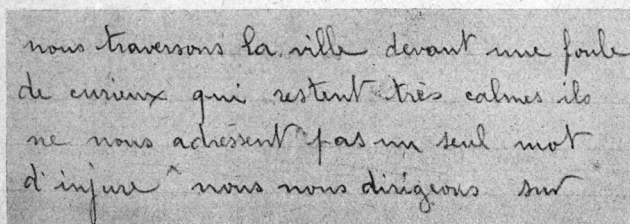 nous traversons la ville devant une foule
de curieux qui restent très calmes ils
ne nous adressent pas un seul mot
d'injure nous nous dirigeons sur